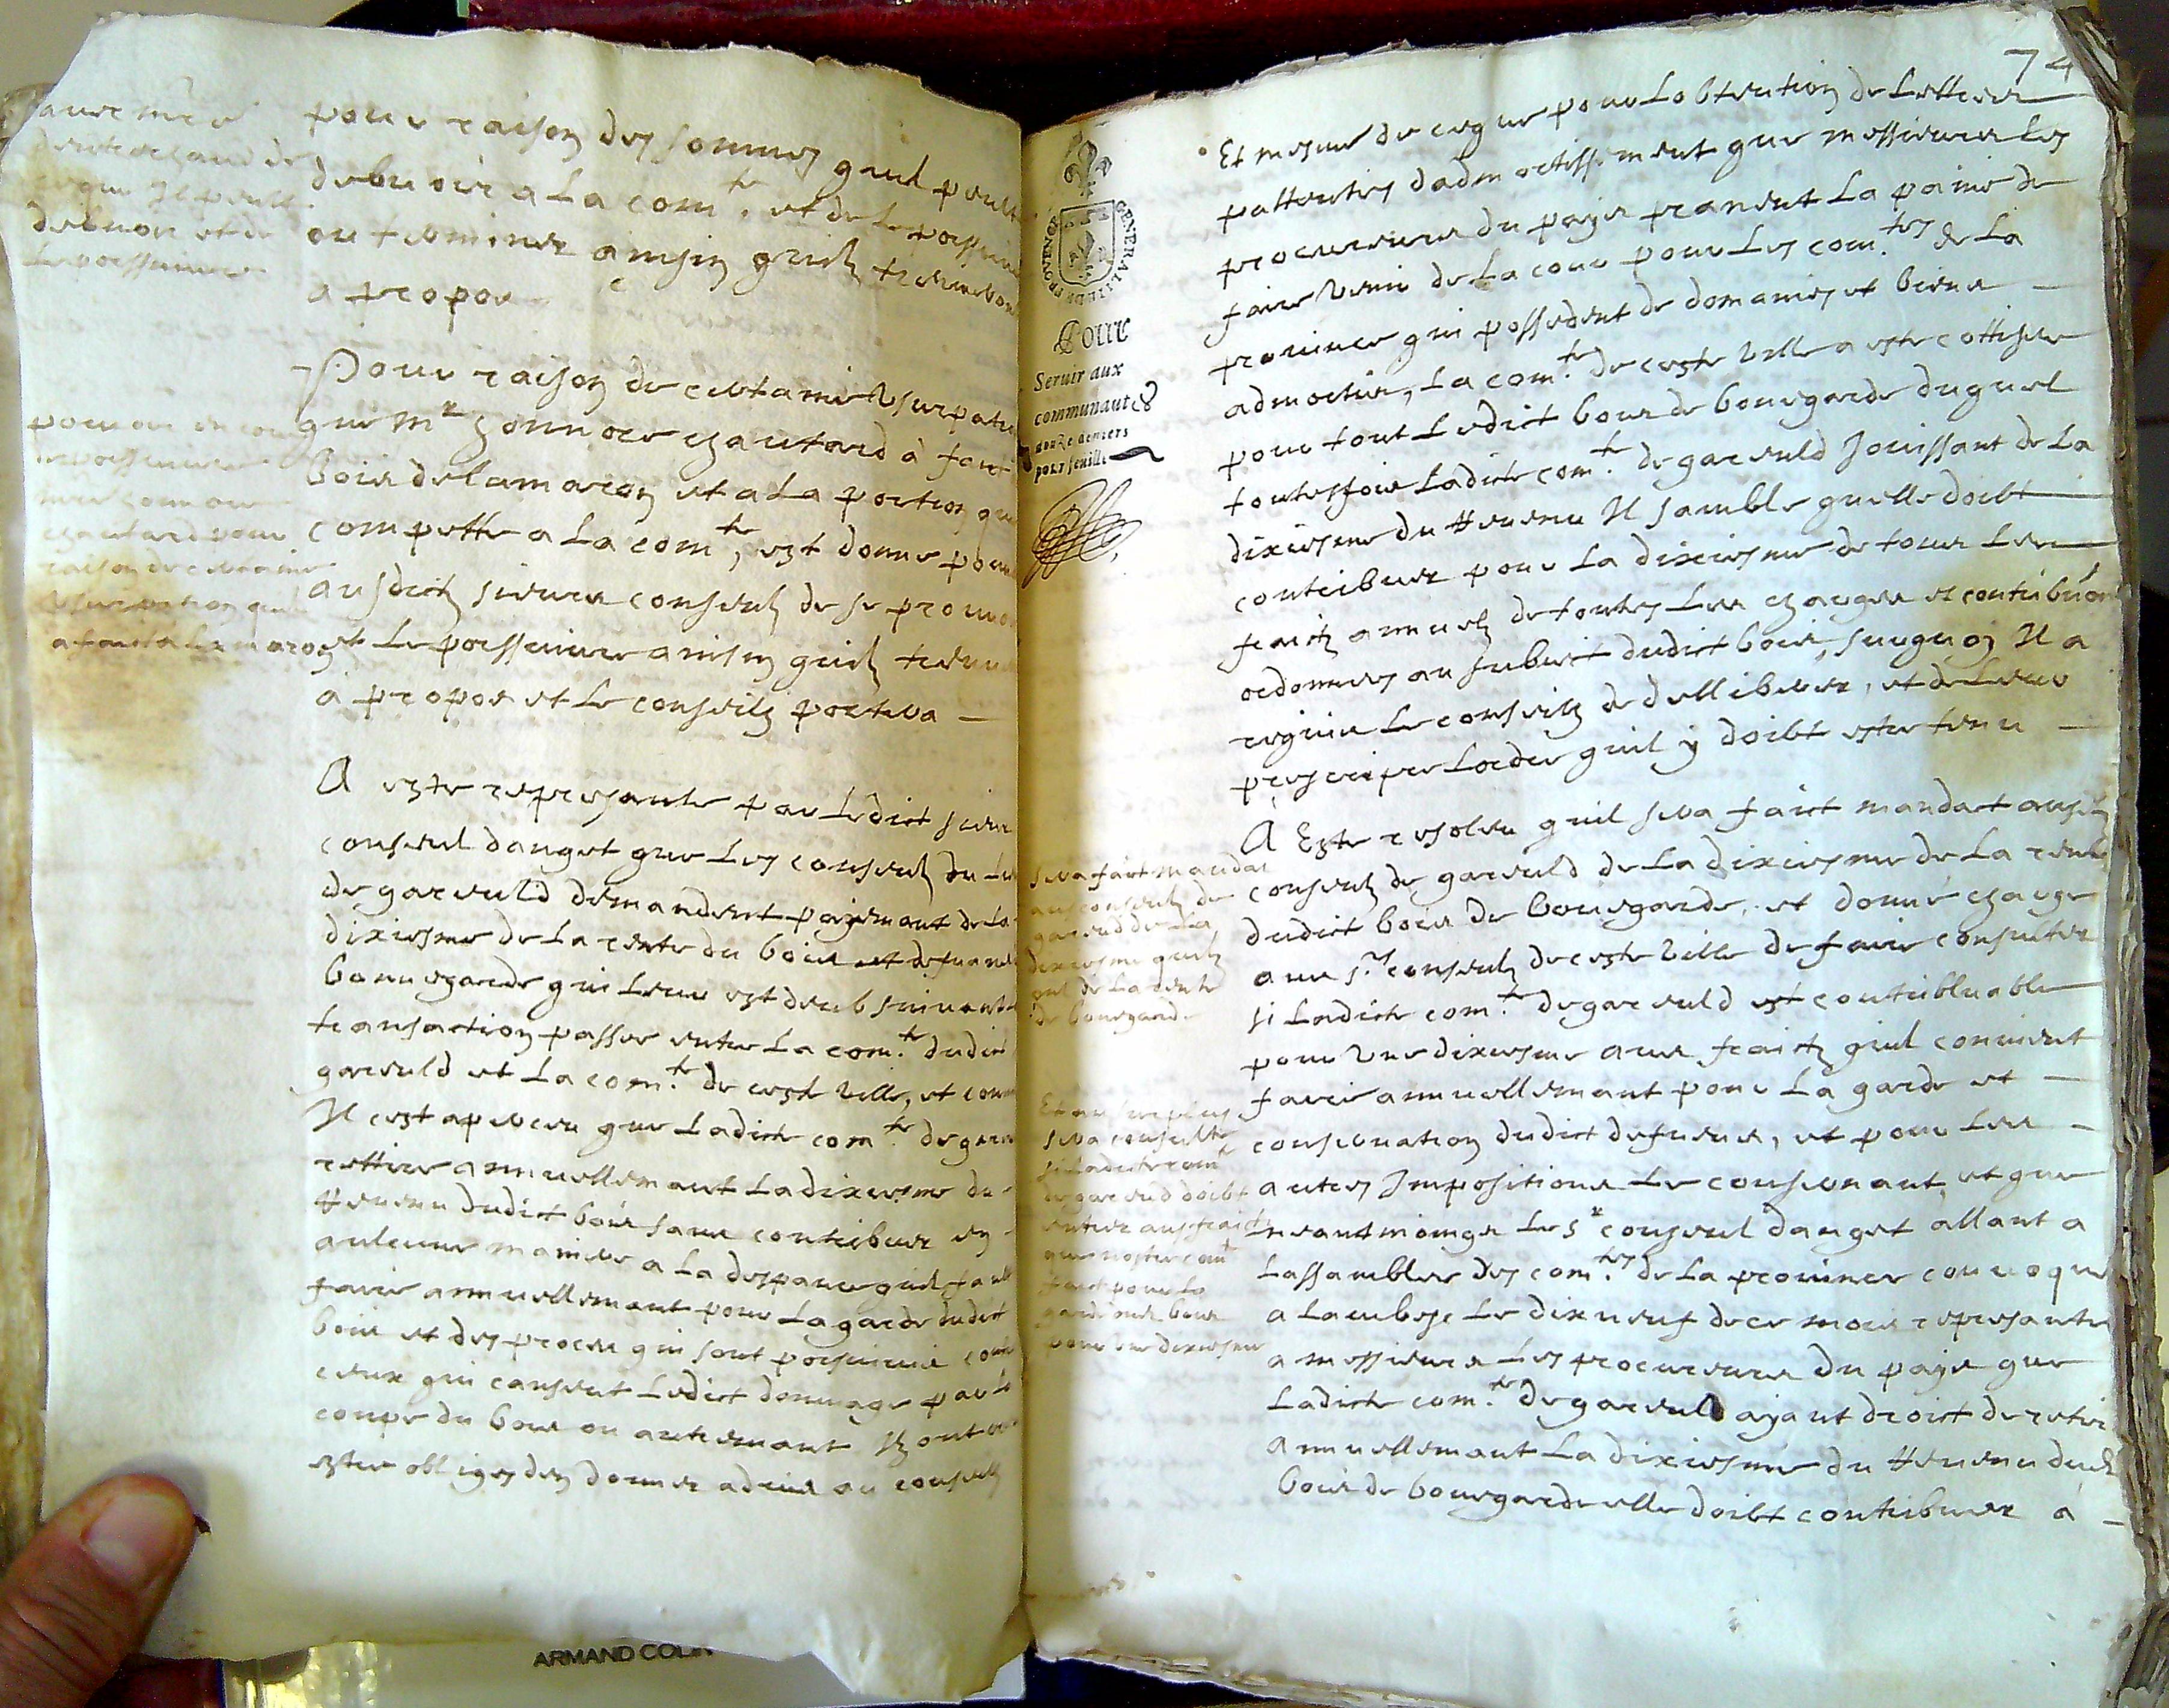 pour raison des sommes quil peult
debuoir a la com.te et de le poursuiure
ou terminer ainsin quilz treuueront
a propos
Pour raison de certaine Vsurpation
que Mr honnore chautard à faict
bois de lamaron et a la portion que
compette a la com.te, est donne pouuoir
ausdictz sieurs conseulz de se prouuoir
et le poursuiure ainsin quilz treuueront
à propos et le conseilz portera
A este represante par ledict sieur
conseul dauget que les conseulz du lieu
de gareuld demandent payemant de la
dixiesme de la rente du bois et defuens
bouregarde qui leur est deub suiuant la
transaction passee entre la com.te dudict
gareuld et la com.te de ceste ville, et comme
Il cest aperceu que ladicte com.te de gareuld
rettire annuellemant la dixiesme du
Reuenu dudict bois sans contribuer en
aulcune maniere a la despance quil fault
faire annuellemant pour la garde dudict
bois et des proces qui sont poursuiuis contre
ceux qui causent ledict dommage par la
coupe du bois ou autremant Ilz ont
estre obliges den donner aduis au conseilz
auec mr
de ce que Il peult
debuoir et de
le poursuiure
pouuoir
de poursuiure
mre honnore
chautard pour
raison de certaine
Vsurpation quil
a faict a lamaron
74
GENERALITE DE PROVENCE
Pour
Seruir aux
communautés
douze deniers
pour feuille
Et mesme de ce que pour lobtention de lettres
pattentes dadmortissement que messieurs les
procureurs du pays pranent la paine de
faire venir de la cour pour les com.tes de la
prouince qui possedent de domaines et biens
admortis, la com.te de ceste ville a este cottisee
pour tout ledict bois de bouregarde duquel
toutesfois ladicte com.te de gareuld Jouissant de la
dixiesme du Reuenu Il samble quelle doibt
contribuer pour la dixiesme de tous les
fraictz annuelz de toutes les charges et contribuons
ordonnees au subiect dudict bois, surquoy Il a
requis le conseilz de dellibeuer, et de leur
prescripre lordre quil y doibt estre tenu
A Este resoleu quil sera faict mandact ausdictz
conseulz de gareuld de la dixiesme de la rente
dudict bois de bouregarde, et donné charge
aux s.rs conseulz de ceste ville de faire consulter
si ladicte com.te de gareuld est contribluable
pour Vne dixiesme aux fraictz quil conuient
faire annuellemant pour la garde et
conseruation dudict defuens, et pour les
autres Impositions le consernant, et que
neantmoings le sr conseul dauget allant a
lassamblee des com.tes de la prouince conuoquee
a lambesc le dixneuf de ce mois represantera
a messieurs les procureurs du pays que
ladicte com.te de gareuld ayant droict de retirer
annuellemant la dixiesme du Reuenu dudict
bois de bouregarde elle doibt contribuer à
sera faict mandat
aux conseulz de
gareud de la
dixiesme quilz
ont de la rente
de bouregarde
sera consulte
si ladicte com.te
de gareud doibt
entrer aux fraictz
que nostre com.te
faict pour la
garde
pour vne dixiesme
ARMAND COLIN